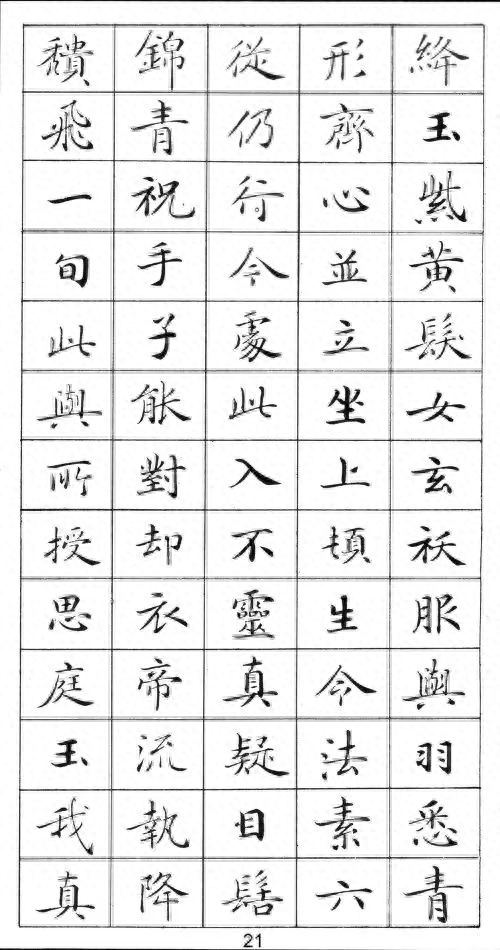 絳玉紫黃髮女玄祅服與羽悉青
形齊心並立坐上頓生今法素六
從仍行今處此入不靈真疑目髻
錦青祝手子能對却衣帝流執降
飛一旬此與所授思庭玉我真
21